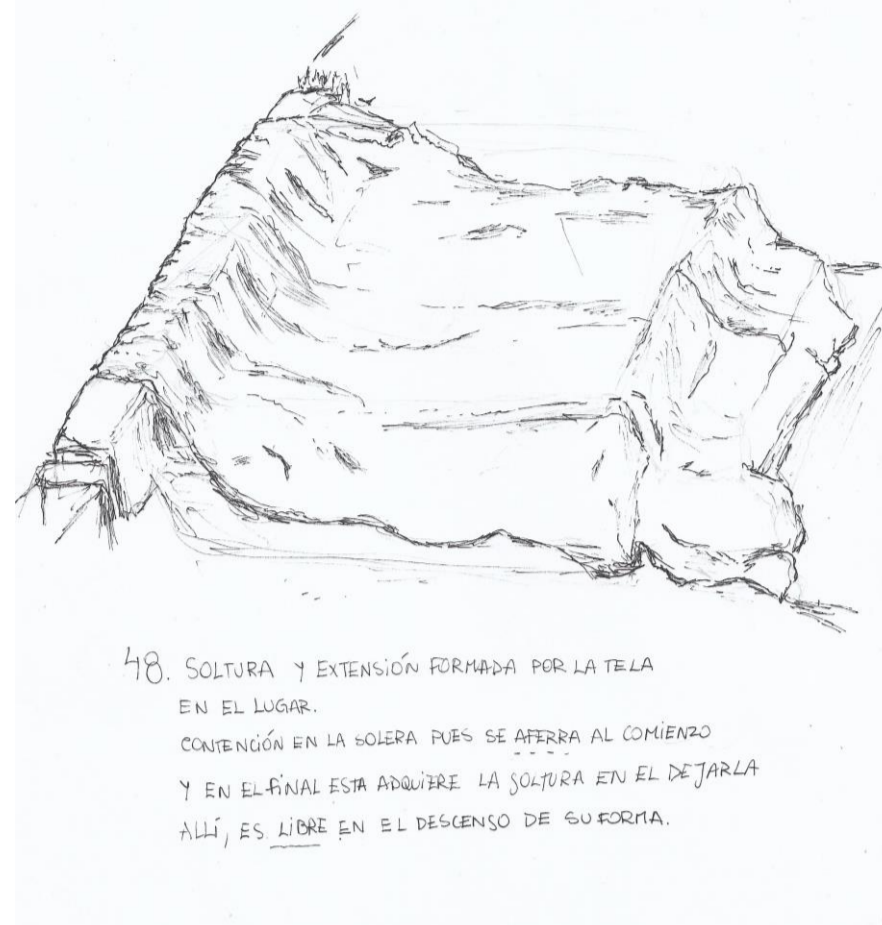 48. SOLTURA Y EXTENSIÓN FORMADA POR LA TELA
EN EL LUGAR.
CONTENCIÓN EN LA SOLERA PUES SE AFERRA AL COMIENZO
Y EN EL FINAL ESTA ADQUIERE LA SOLTURA EN EL DEJARLA
ALLÍ, ES LIBRE EN EL DESCENSO DE SU FORMA.